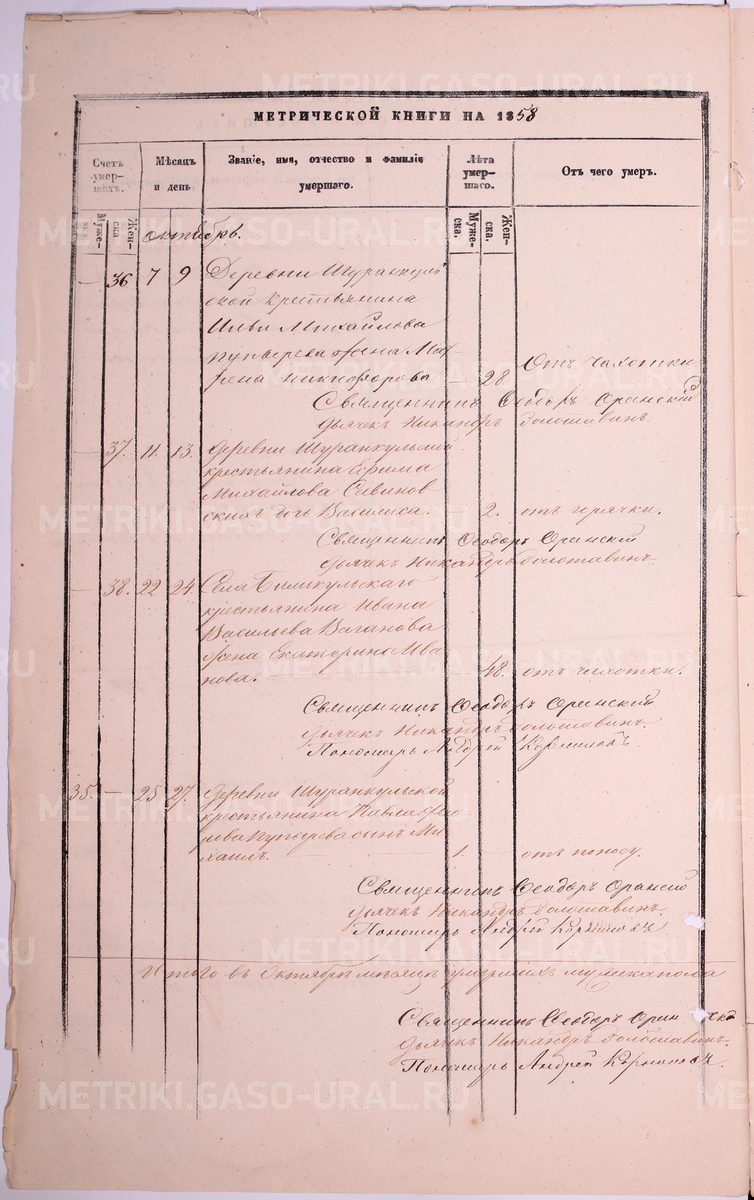 МЕТРИЧЕСКОЙ КНИГИ НА 1858
Счетъ умер- шихъ.
Мѣсяцъ и день.
Званіе, имя, отчество и фамилія умершаго.
Лѣта умер- шаго.
Отъ чего умеръ.
Муже- ска
Жен- ска
Муже- ска.
Жен- ска.
октябрь.
36 7 9 Деревни Шуранкуль
ской крестьянина
Ильи Михайлова
Пупырева жена Мат
рена Никифорова — 28 Отъ чахотки
Священникъ Ѳеодоръ Оранский
Дьячекъ Никандръ Золотавинъ.
— 37. 11. 13. деревни Шуранкульской
крестьянина Ефима
Михайлова Савинов
скихъ дочь Василиса. — 2. отъ горячки.
Священникъ Ѳеодоръ Оранский
Дьячекъ Никандръ Золотавинъ.
— 38. 22 24. Села Биликульскаго
крестьянина Ивана
Васильева Ваганова
жена Екатерина Ива
нова. 48. отъ чахотки.
Священникъ Ѳеодоръ Оранский
Дьячекъ Никандръ Золотавинъ.
Пономарь Андрей Корниловъ.
35. — 25 27. Деревни Шуранкульской
крестьянина Павла
Пупырева сынъ Ми
хаилъ. 1. отъ поносу.
Священникъ Ѳеодоръ Оранский
Дьячекъ Никандръ Золотавинъ.
Пономарь Андрей Корниловъ
Итого въ Октябрѣ мѣсяцѣ умершихъ мужска пола
Священникъ Ѳеодоръ Оран
Дьячекъ Никандръ Золотавинъ.
Пономарь Андрей Корниловъ.
METRIKI.GASO-URAL.RU